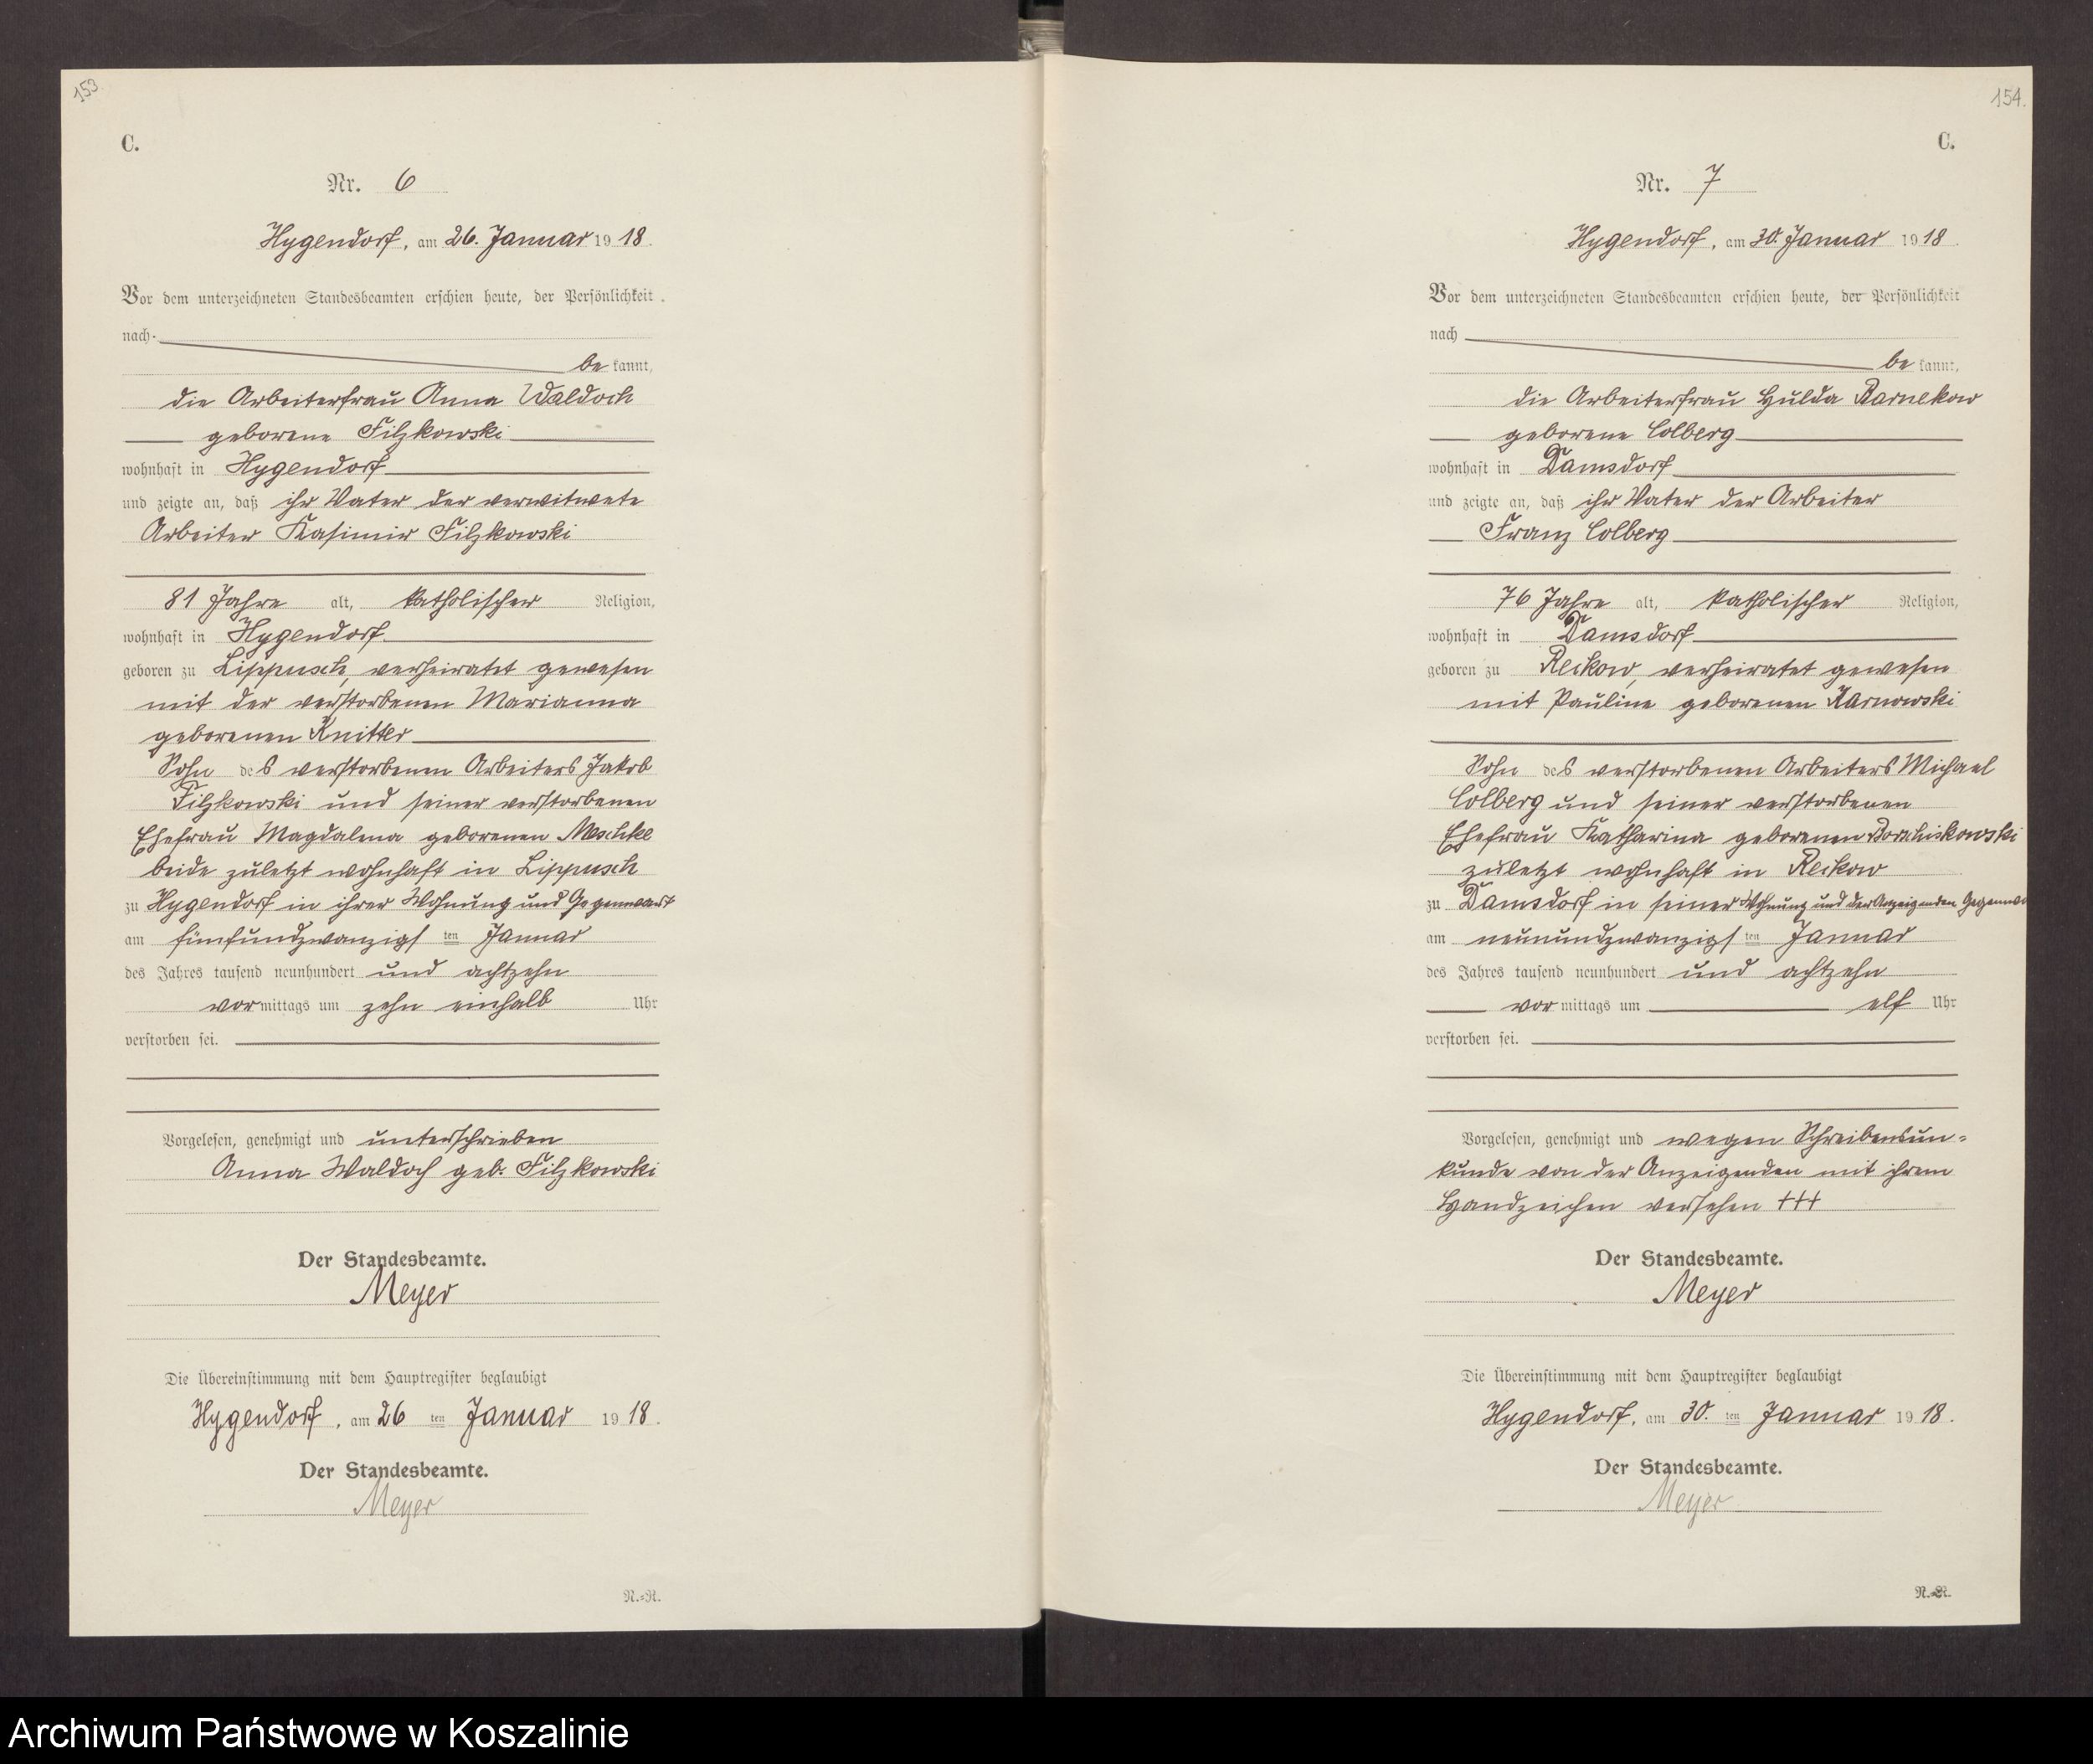 153
C.
Nr. 6
Hygendorf, am 26. Januar 1918.
Vor dem unterzeichneten Standesbeamten erschien heute, der Persönlichkeit
nach
be kannt,
die Arbeiterfrau Anna Waldoch
geborene Filzkowski
wohnhaft in Hygendorf
und zeigte an, daß ihr Vater der verwitwete
Arbeiter Kasimir Filzkowski
81 Jahre alt, katholischer Religion,
wohnhaft in Hygendorf
geboren zu Lippusch, verheiratet gewesen
mit der verstorbenen Marianna
geborenen Knitter
Sohn des verstorbenen Arbeiters Jakob
Filzkowski und seiner verstorbenen
Ehefrau Magdalena geborenen Meschke
beide zuletzt wohnhaft in Lippusch
zu Hygendorf in ihrer Wohnung und Gegenwart
am fünfundzwanzigsten Januar
des Jahres tausend neunhundert und achtzehn
vormittags um zehn einhalb Uhr
verstorben sei.
Vorgelesen, genehmigt und unterschrieben
Anna Waldoch geb. Filzkowski
Der Standesbeamte.
Meyer
Die Übereinstimmung mit dem Hauptregister beglaubigt
Hygendorf, am 26 ten Januar 1918.
Der Standesbeamte.
Meyer
N.-R.
154.
C.
Nr. 7
Hygendorf, am 30. Januar 1918.
Vor dem unterzeichneten Standesbeamten erschien heute, der Persönlichkeit
nach
be kannt,
die Arbeiterfrau Hulda Barnekow
geborene Colberg
wohnhaft in Damsdorf
und zeigte an, daß ihr Vater der Arbeiter
Franz Colberg
76 Jahre alt, katholischer Religion,
wohnhaft in Damsdorf
geboren zu Reckow, verheiratet gewesen
mit Pauline geborenen Karnowski
Sohn des verstorbenen Arbeiters Michael
Colberg und seiner verstorbenen
Ehefrau Katharina geborenen
zuletzt wohnhaft in Reckow
zu Damsdorf in seiner Wohnung und der Anzeigenden
am neunundzwanzigsten Januar
des Jahres tausend neunhundert und achtzehn
vormittags um elf Uhr
verstorben sei.
Vorgelesen, genehmigt und wegen Schreibensun-
kunde von der Anzeigenden mit ihrem
Handzeichen versehen +++
Der Standesbeamte.
Meyer
Die Übereinstimmung mit dem Hauptregister beglaubigt
Hygendorf, am 30. ten Januar 1918.
Der Standesbeamte.
Meyer
N.-R.
Archiwum Państwowe w Koszalinie